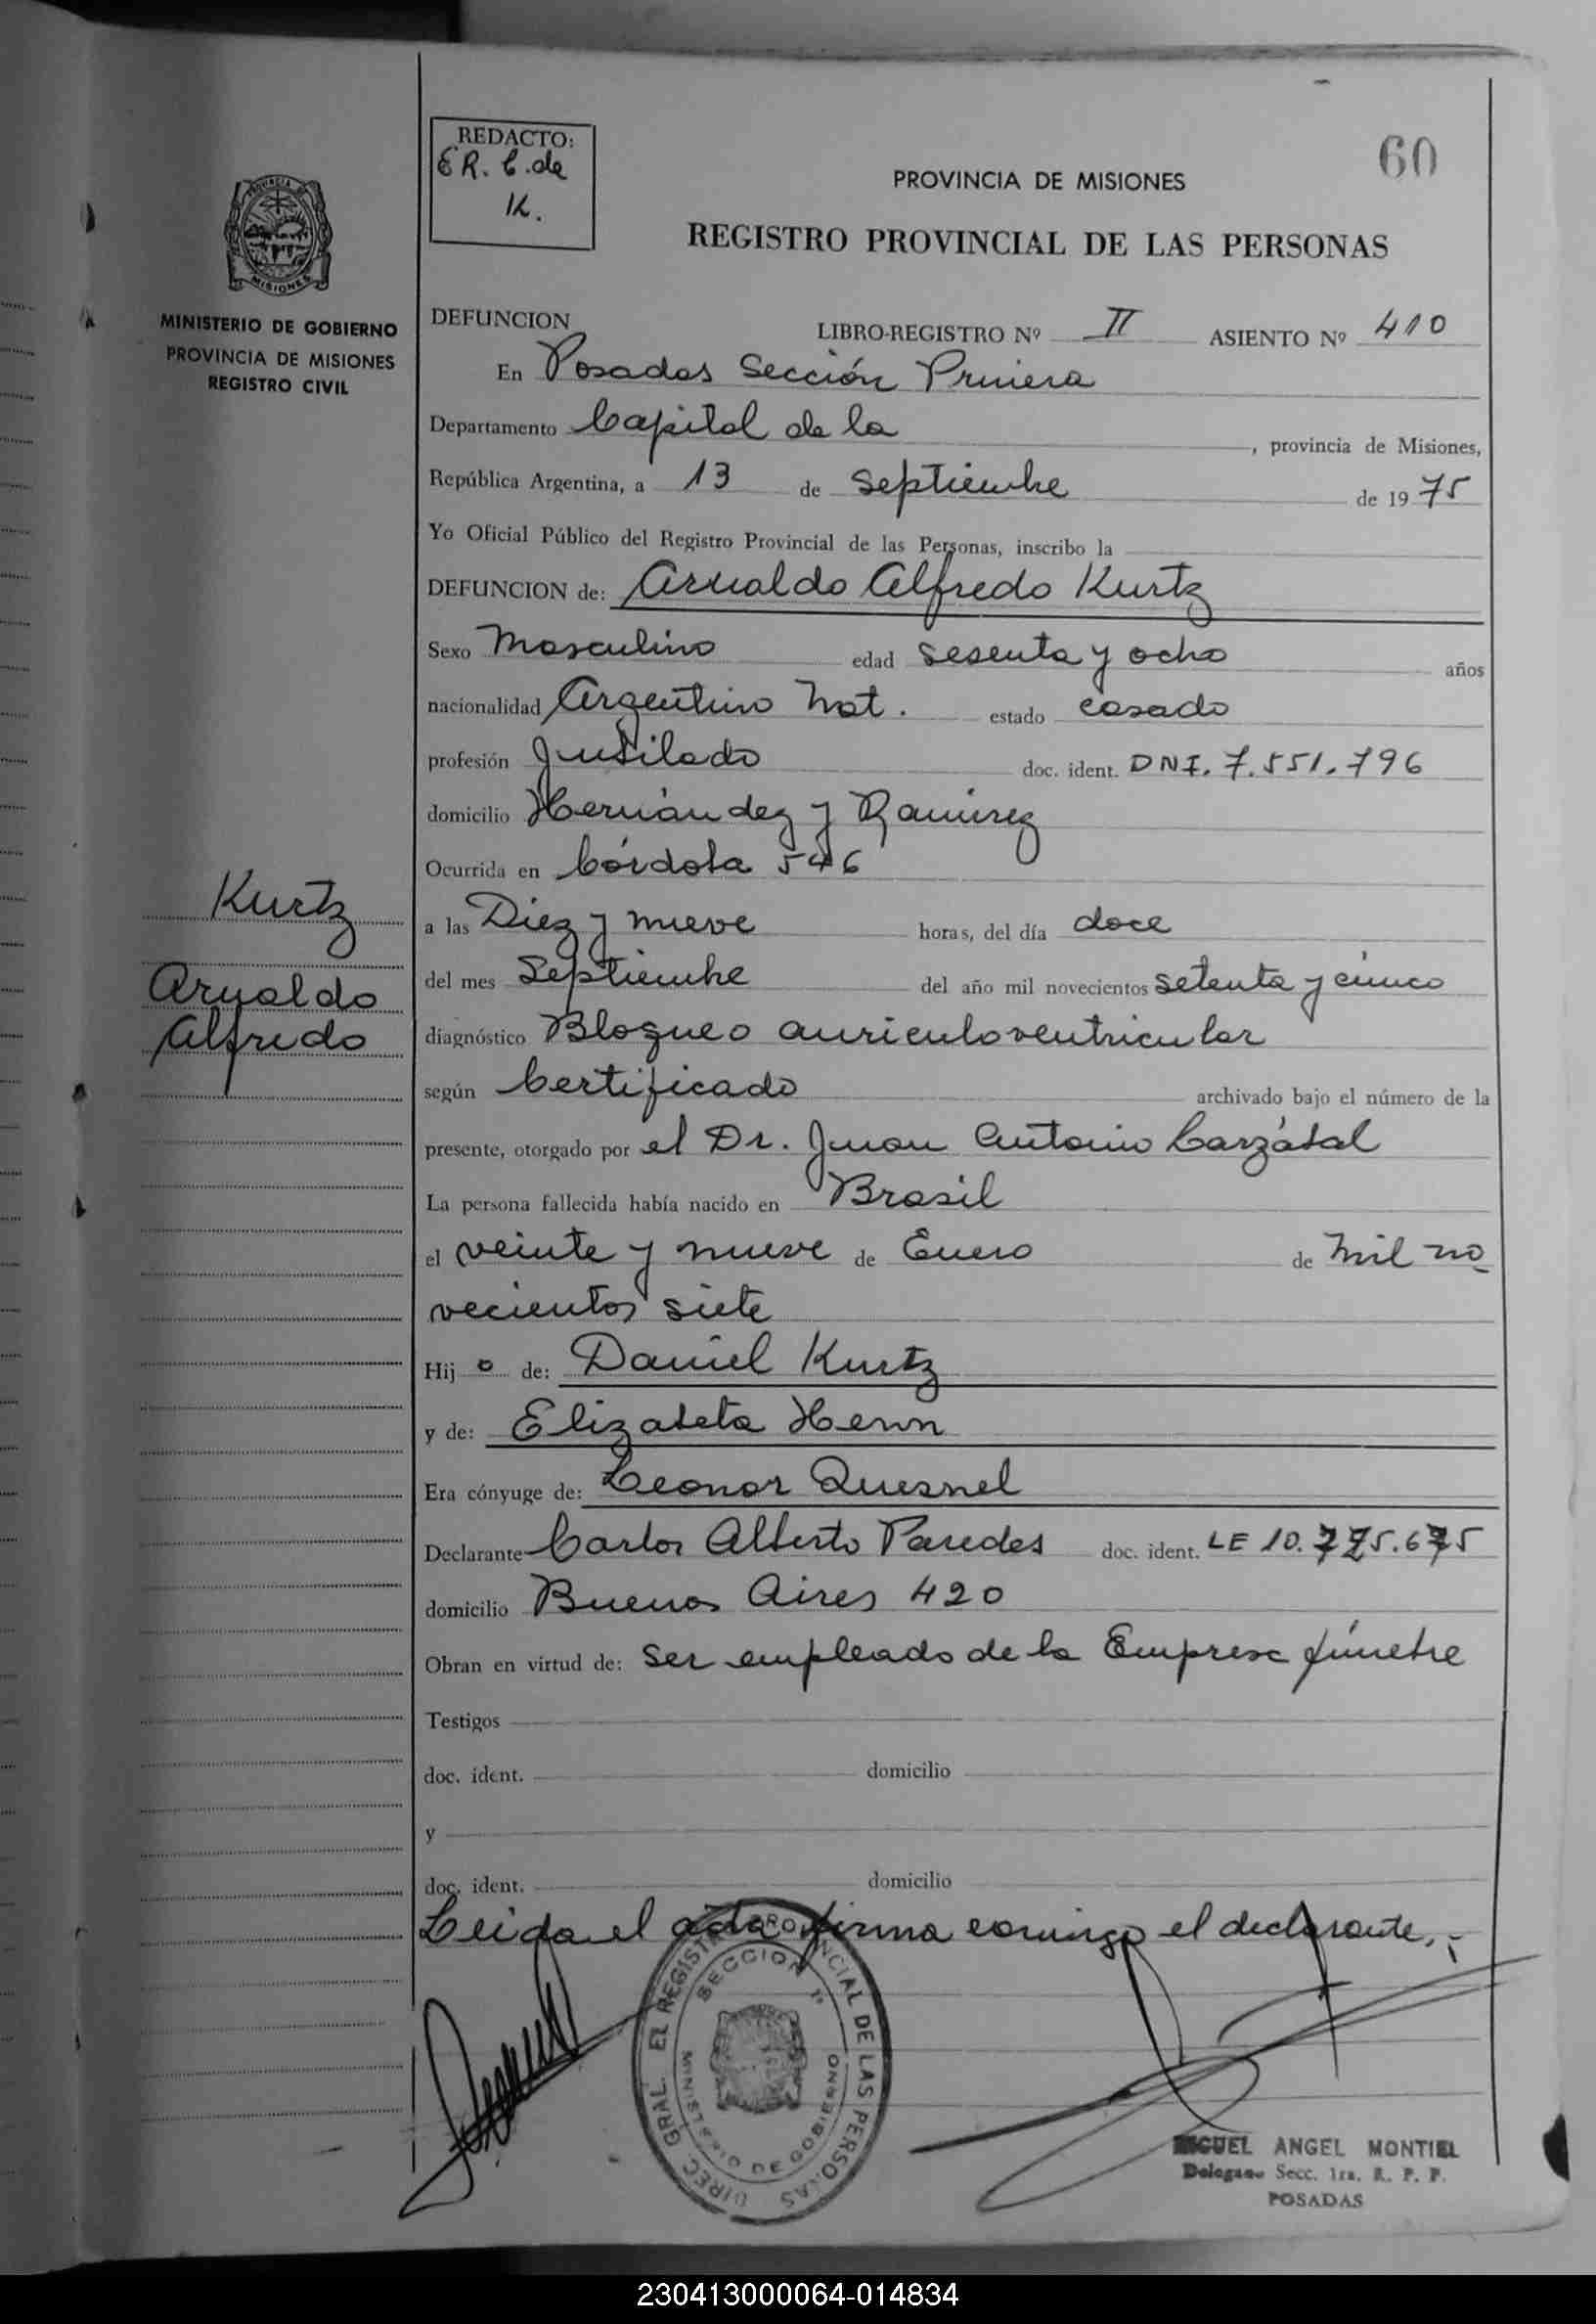 60
REDACTO:
E R. C. de
K.
PROVINCIA DE MISIONES
REGISTRO PROVINCIAL DE LAS PERSONAS
MISIONES
MINISTERIO DE GOBIERNO
PROVINCIA DE MISIONES
REGISTRO CIVIL
DEFUNCION
LIBRO-REGISTRO Nº II ASIENTO Nº 410
En Posadas Sección Primera
Departamento Capital de la , provincia de Misiones,
República Argentina, a 13 de Septiembre de 1975
Yo Oficial Público del Registro Provincial de las Personas, inscribo la
DEFUNCION de: Arnaldo Alfredo Kurtz
Sexo Masculino edad sesenta y ocho años
nacionalidad Argentino Nat. estado casado
profesión Jubilado doc. ident. DNI. 7.551.796
domicilio Hernández y Ramirez
Ocurrida en Córdoba 546
Kurtz
Arnaldo
Alfredo
a las Diez y nueve horas, del día doce
del mes Septiembre del año mil novecientos setenta y cinco
diagnóstico Bloqueo auriculoventricular
según Certificado archivado bajo el número de la
presente, otorgado por el Dr. Juan Antonio Carzábal
La persona fallecida había nacido en Brasil
el veinte y nueve de Enero de mil no
vecientos siete
Hij o de: Daniel Kurtz
y de: Elizabeta Henn
Era cónyuge de: Leonor Quesnel
Declarante Carlos Alberto Paredes doc. ident. LE 10.775.675
domicilio Buenos Aires 420
Obran en virtud de: ser empleado de la Empresa fúnebre
Testigos
doc. ident. domicilio
y
doc. ident. domicilio
Leida el acta firma conmigo el declarante.
DIREC. GRAL. EL REGISTRO PROVINCIAL DE LAS PERSONAS
SECCION 1ª
MINISTERIO DE GOBIERNO
MIGUEL ANGEL MONTIEL
Delegado Secc. 1ra. R. P. P.
POSADAS
230413000064-014834